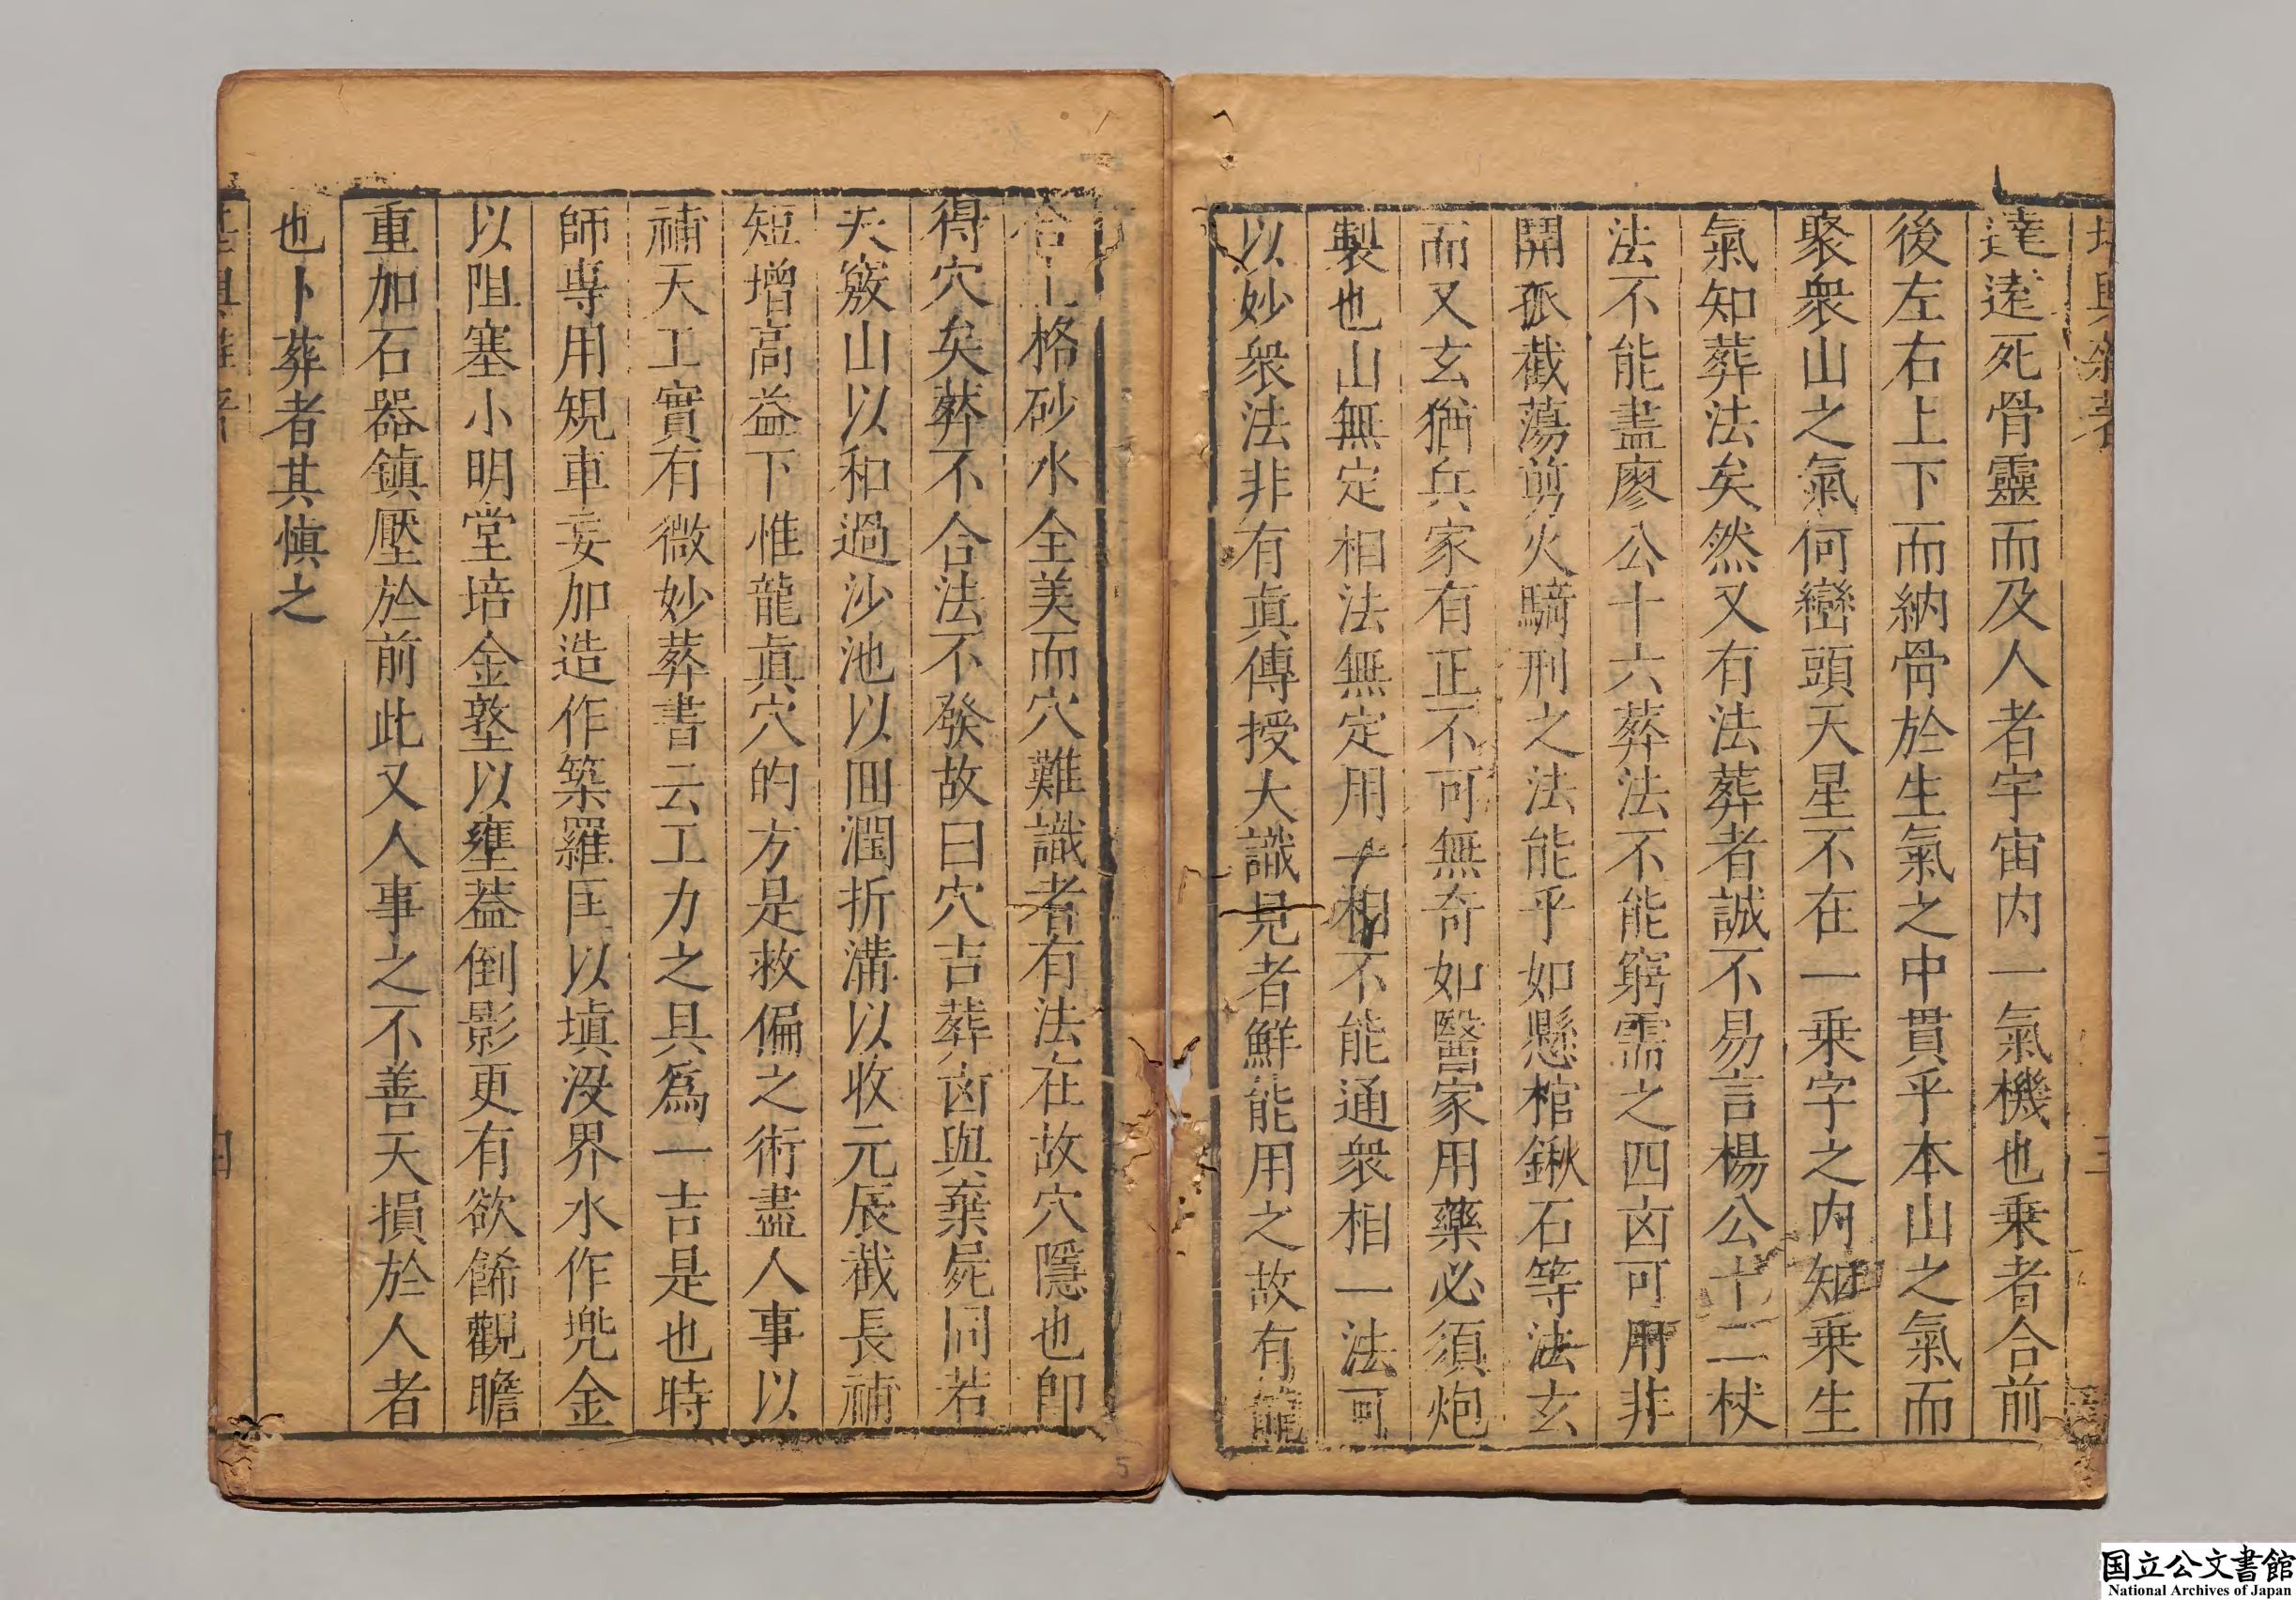 達遠死骨靈而及人者宇宙内一氣機也乗者合前
後左右上下而納骨於生氣之中貫乎本山之氣而
聚衆山之氣何巒頭天星不在一乗字之内知乗生
氣知葬法矣然又有法葬者誠不易言楊公十二杖
法不能盡廖公十六葬法不能窮需之四凶可用非
開孤截蕩剪火騎刑之法能乎如懸棺鍬石等法玄
而又玄猶兵家有正不可無奇如醫家用藥必須炮
製也山無定相法無定用一相不能通衆相一法可
以妙衆法非有眞傳授大識見者鮮能用之故有龍
合上格砂水全美而穴難識者有法在故穴隱也卽
得穴矣葬不合法不發故曰穴吉葬凶與棄屍同若
夫窽山以和過沙池以囬潤折溝以收元辰截長補
短增高益下惟龍眞穴的方是救偏之術盡人事以
補天工實有微妙葬書云工力之具爲一吉是也時
師專用規車妄加造作築羅匡以塡没界水作兠金
以阻塞小明堂培金墪以壅葢倒影更有欲餙觀瞻
重加石器鎭壓於前此又人事之不善天損於人者
也卜葬者其愼之
国立公文書館
National Archives of Japan